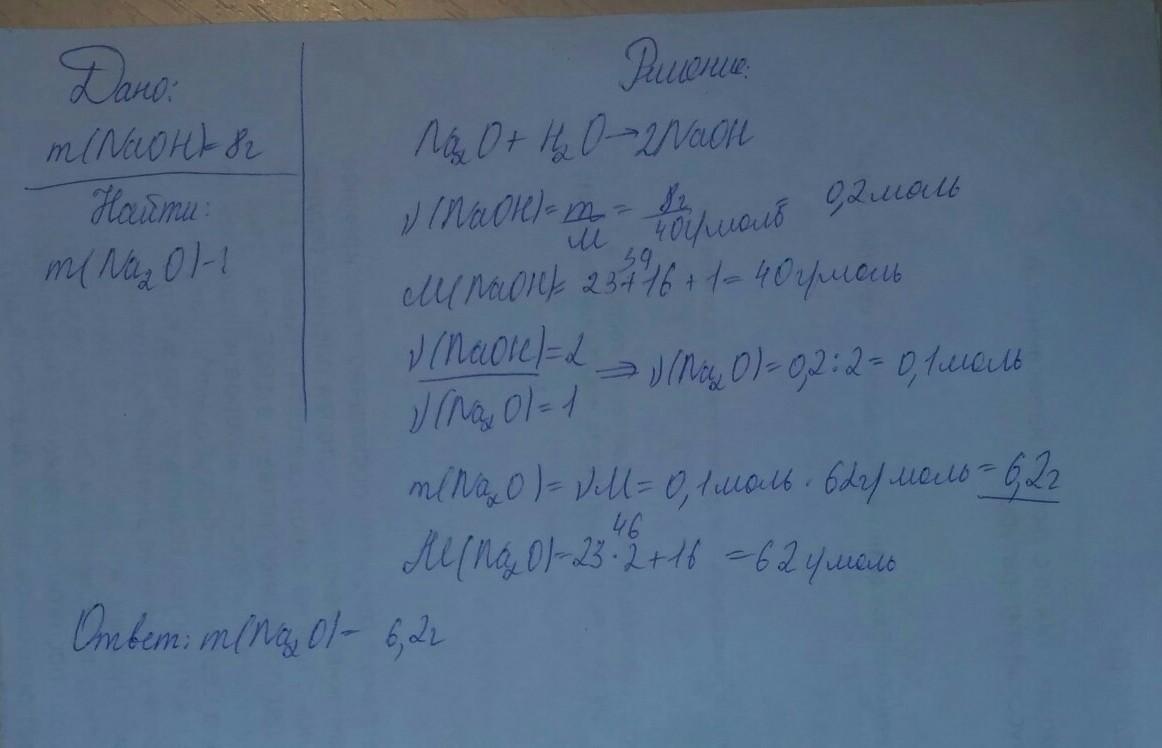 Дано:
m(NaOH)= 8г
Найти:
m(Na₂O)-?
Решение:
Na₂O + H₂O → 2NaOH
ν(NaOH) = m/M = 8г/40г/моль = 0,2 моль
39
M(NaOH)= 23+16 + 1 = 40 г/моль
ν(NaOH)=2
ν(Na₂O)=1
⇒ ν(Na₂O)= 0,2:2= 0,1 моль
m(Na₂O) = νM = 0,1 моль · 62г/моль = 6,2г
46
M(Na₂O)=23·2+16 =62 г/моль
Ответ: m(Na₂O)- 6,2г